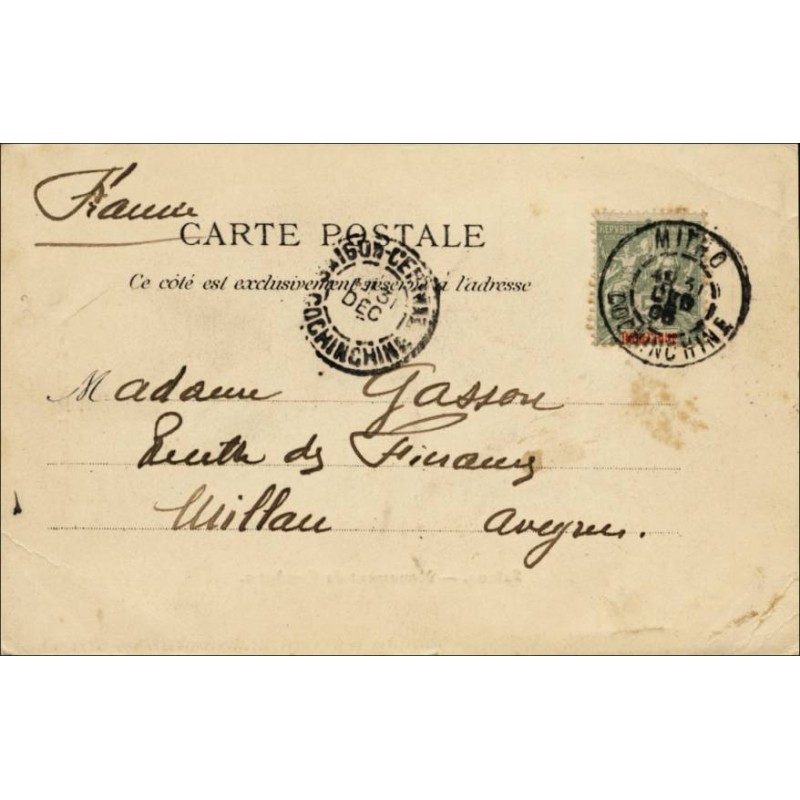 France
CARTE POSTALE
Ce côté est exclusivement réservé à l'adresse
SAIGON-CENTRAL
31
DEC
COCHINCHINE
REPUBL
MYTHO
31
DEC
COCHINCHINE
Madame Gasson
des Finances
Millau Aveyron.